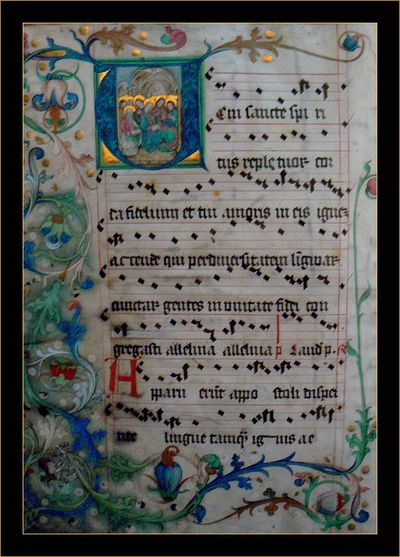 Veni sancte spi ri
tus reple tuor cor
da fidelium et tui amoris in eis igne
accende qui per diversitatem linguar
cunctar gentes in unitate fidei con
gregasti alleluia alleluia p Laud p
Apparu erut appo stoli dispti
tite lingue tamq ig nis ae